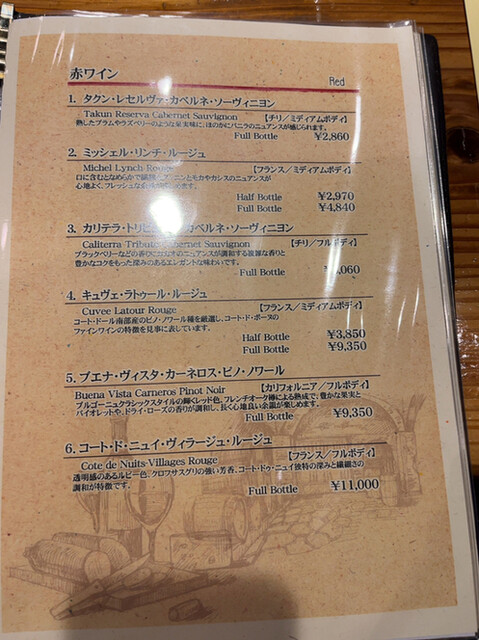 赤ワイン Red
1. タクン・レセルヴァ・カベルネ・ソーヴィニヨン
Takun Reserva Cabernet Sauvignon 【チリ/ミディアムボディ】
熟したプラムやラズベリーのような果実味に、ほのかにバニラのニュアンスが感じられます。
Full Bottle ¥2,860
2. ミッシェル・リンチ・ルージュ
Michel Lynch Rouge 【フランス/ミディアムボディ】
口に含むとなめらかで繊細 ニンとモカやカシスのニュアンスが
心地よく、フレッシュな め ます。
Half Bottle ¥2,970
Full Bottle ¥4,840
3. カリテラ・トリビ カベルネ・ソーヴィニヨン
Caliterra Tribut Cabernet Sauvignon 【チリ/フルボディ】
ブラックベリーなどの香りに のニュアンスが調和する複雑な香りと
豊かなコクをもった深みのあるエレガントな味わいです。
Full Bottle ,060
4. キュヴェ・ラトゥール・ルージュ
Cuvee Latour Rouge 【フランス/ミディアムボディ】
コート・ドール南部産のピノ・ノワール種を厳選し、コート・ド・ボーヌの
ファインワインの特徴を見事に表しています。
Half Bottle ¥3,850
Full Bottle ¥9,350
5. ブエナ・ヴィスタ・カーネロス・ピノ・ノワール
Buena Vista Carneros Pinot Noir 【カリフォルニア/フルボディ】
ブルゴーニュクラシックスタイルの輝くレッド色。フレンチオーク樽による熟成で、豊かな果実と
バイオレットや、ドライ・ローズの香りが調和し、長く心地良い余韻が楽しめます。
Full Bottle ¥9,350
6. コート・ド・ニュイ・ヴィラージュ・ルージュ
Cote de Nuits-Villages Rouge 【フランス/フルボディ】
透明感のあるルビー色、クロフサスグリの強い芳香、コート・ドゥ・ニュイ独特の深みと繊細さの
調和が特徴です。
Full Bottle ¥11,000